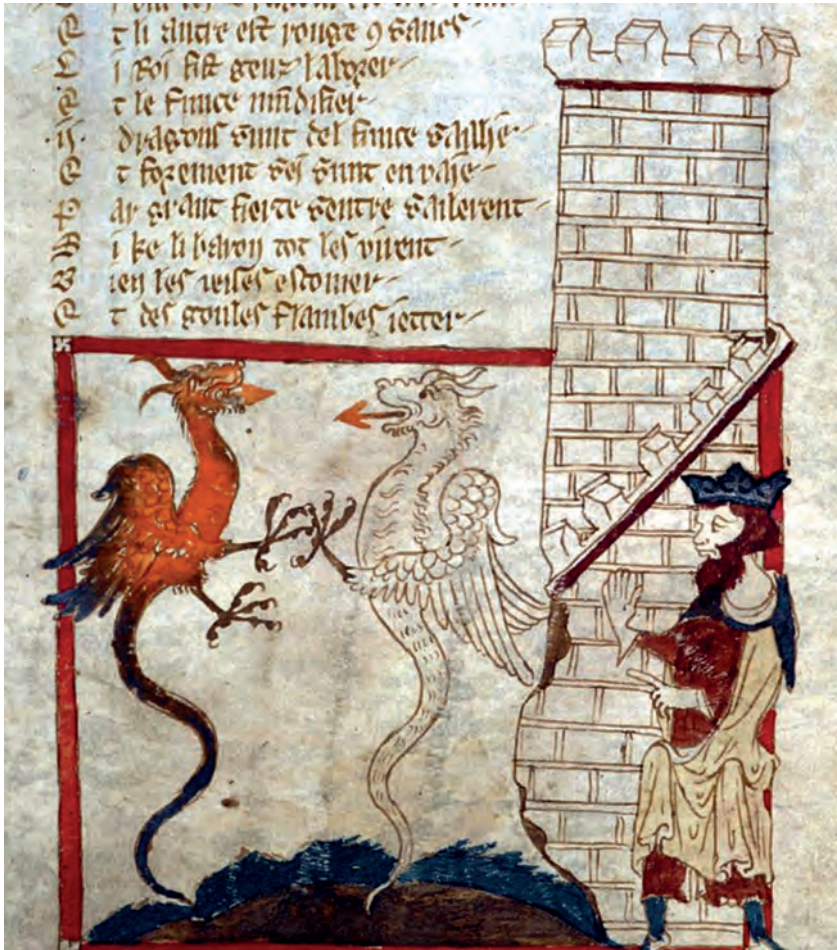 E t li autre est rouge 9 sancs
L i Roi fist leuz laborer
E t le funce mūdifier
.ij. dragons sunt del funce saillie
E t forement sei sunt en vaie
P ar grant fierte sentre sailerent
S i ke li baron tot les virent
B ien les veises escomer
E t des goules flambes ietter